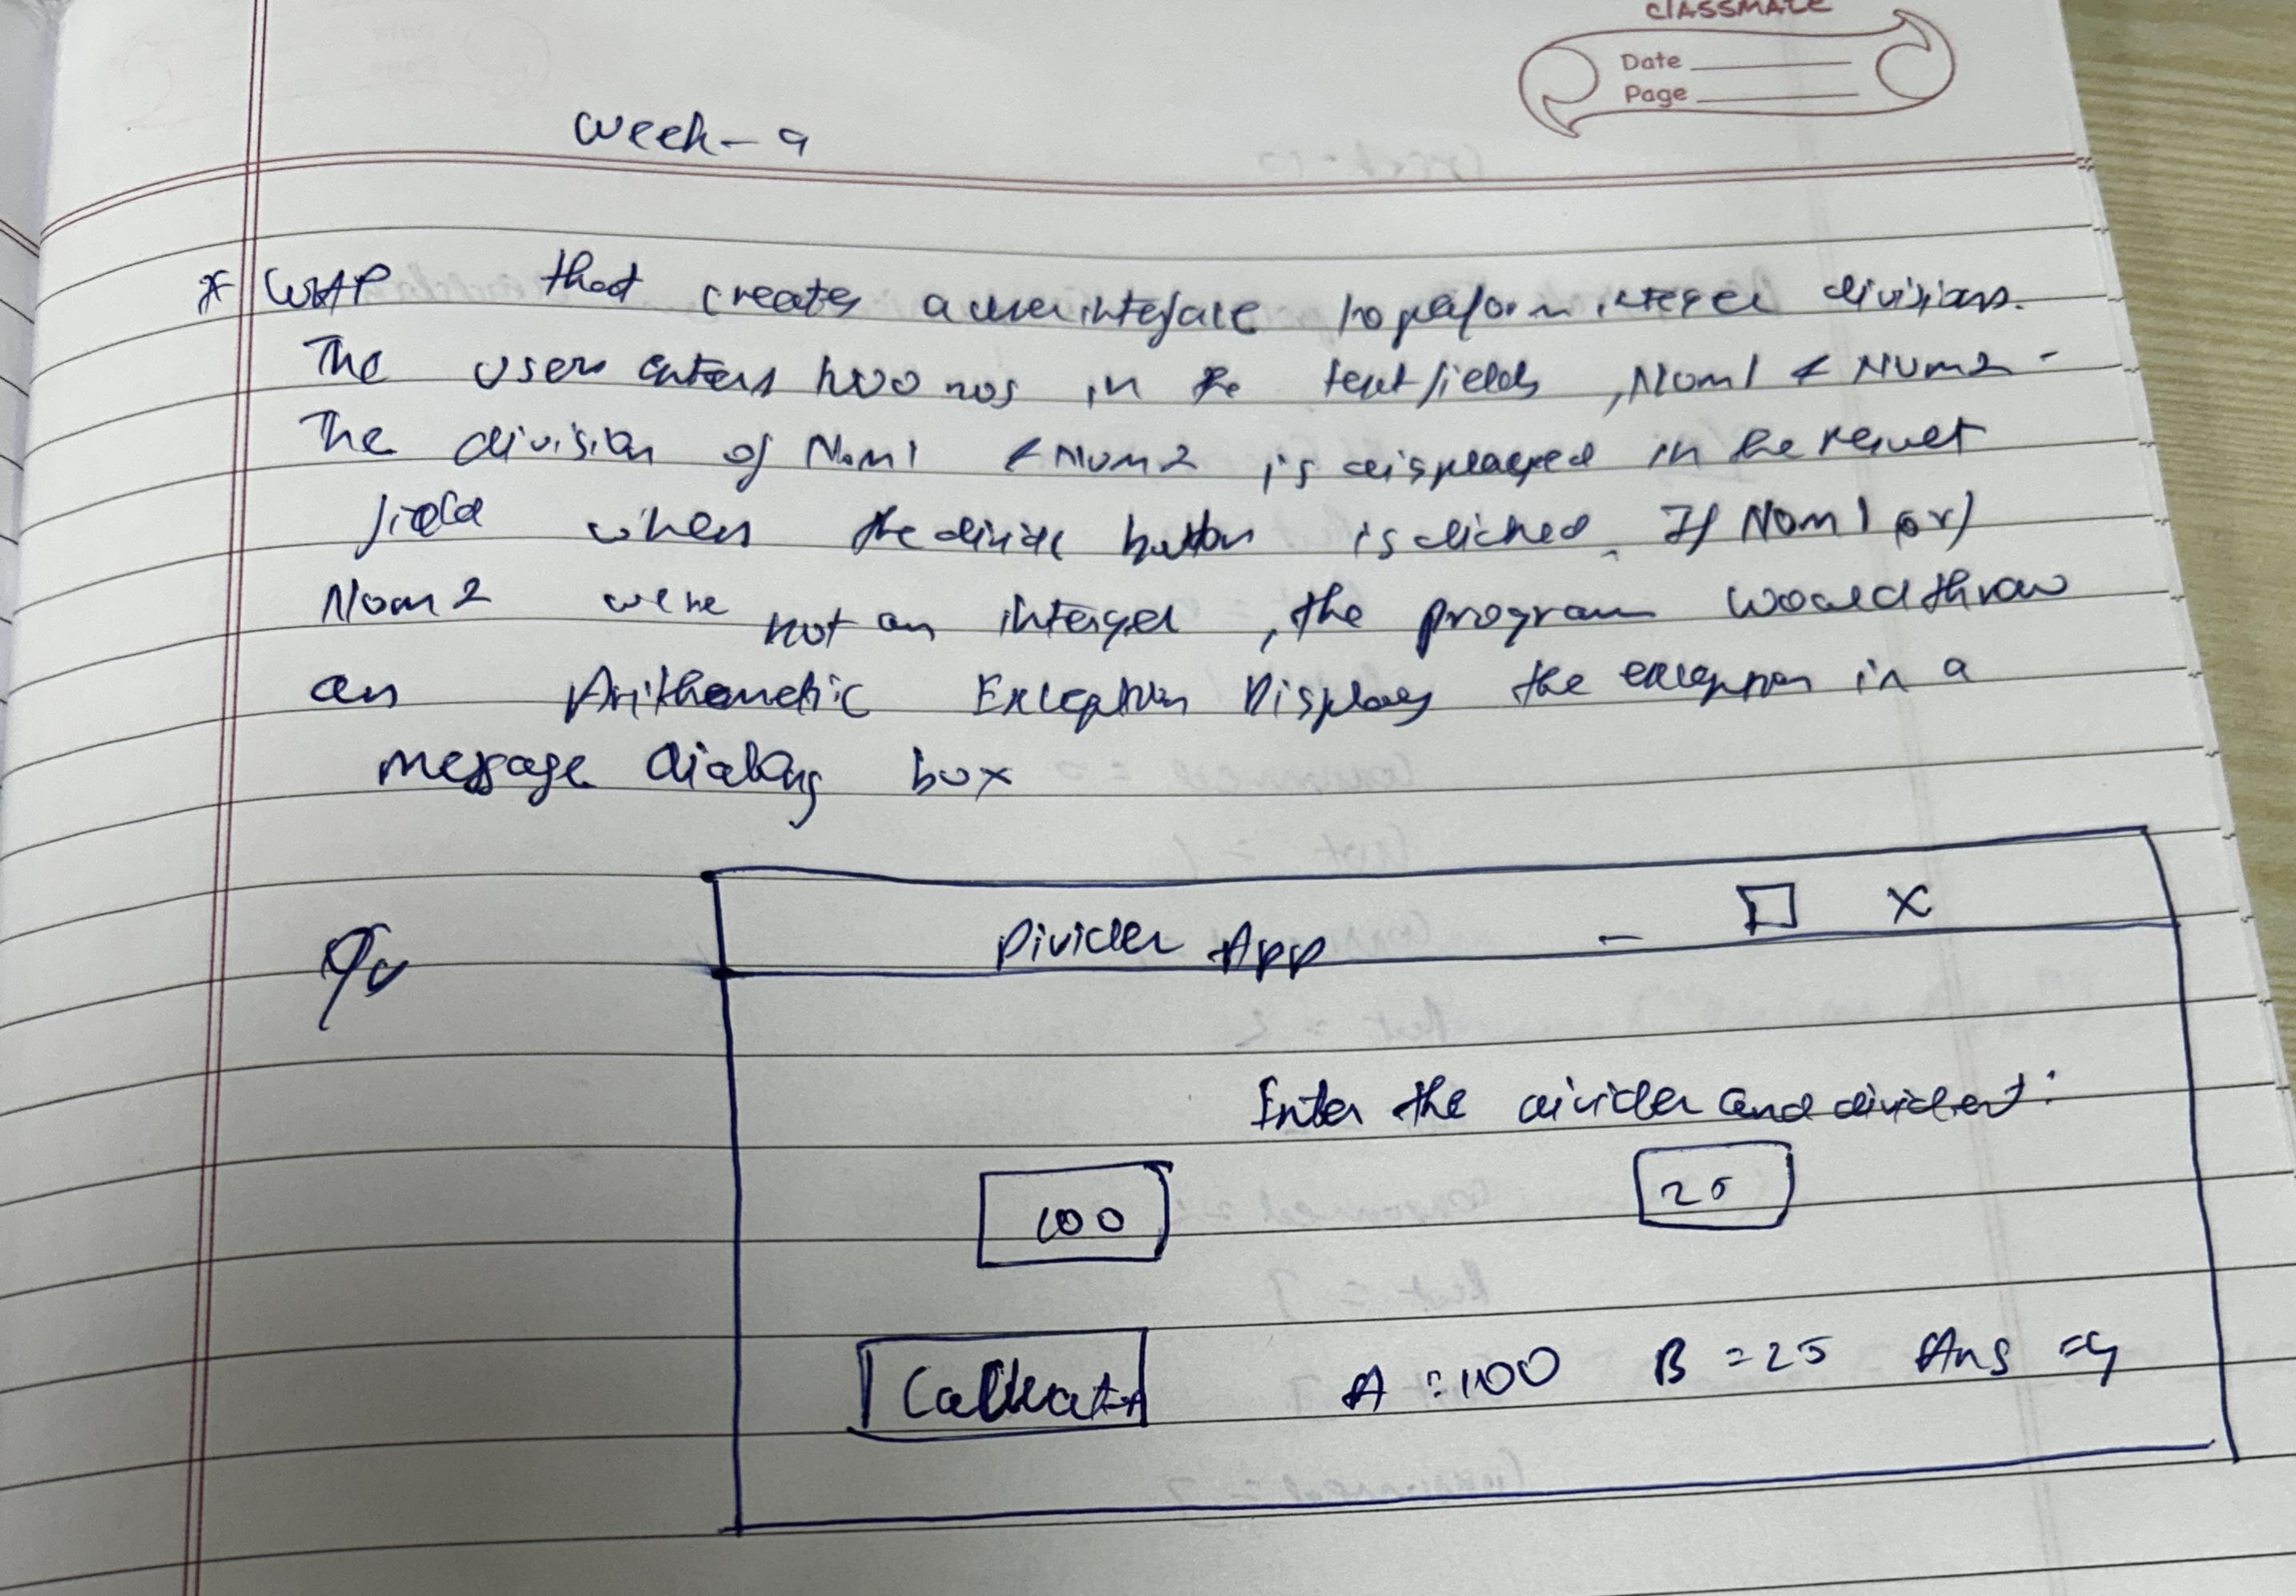 classmate
Date
Page
Week - 9
* WAP that creates a user interface to perform integer divisions.
The user enters two nos in the text fields, Num1 & Num2 -
The division of Num1 & Num2 is displayed in the result
field when the divide button is clicked. If Num1 or)
Num2 were not an interger, the program would throw
an Arithemetic Exception Display the exception in a
message dialog box
Divider App - X
Enter the divider and divident:
100 25
A = 100 B = 25 Ans = 4